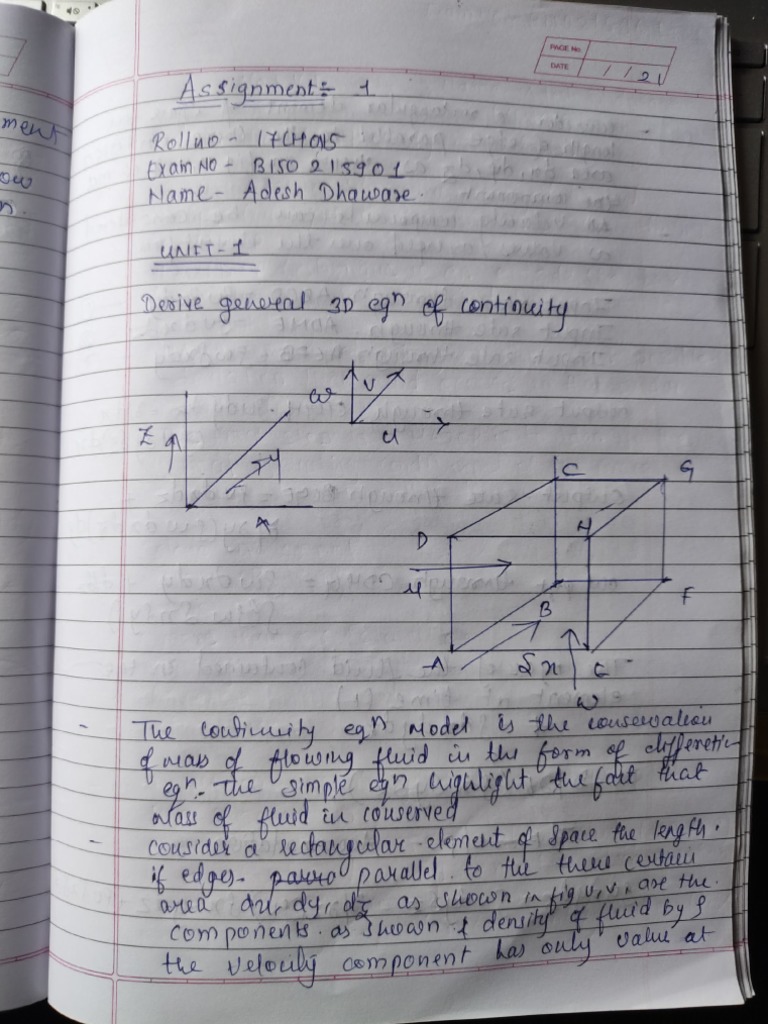 ment
ow
n.
PAGE No.
DATE / / 21
Assignment:- 1
Roll no - 17CH015
Exam NO - B150215901
Name - Adesh Dhaware.
UNIT-1
Derive general 3D eqn of continuity
Z
y
x
w
v
u
C
G
D
H
u
B
F
A
δx
E
w
- The continuity eqn Model is the conservation
of mass of flowing fluid in the form of differetin
eqn. The simple eqn highlight the fact that
Mass of fluid in conserved
- consider a rectangular element of space the length.
if edges parallel to the there certain
area dx, dy, dz as shown in fig u, v, v, are the
components as shown & density of fluid by ρ
the velocity component has only value at